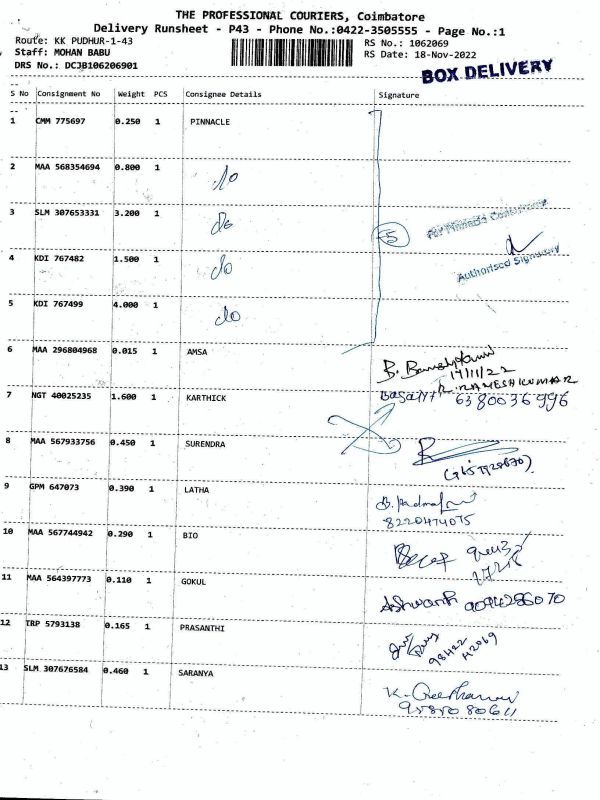 THE PROFESSIONAL COURIERS, Coimbatore
Delivery Runsheet - P43 - Phone No.:0422-3505555 - Page No.:1
Route: KK PUDHUR-1-43
RS No.: 1062069
Staff: MOHAN BABU
RS Date: 18-Nov-2022
DRS No.: DCJB106206901
BOX DELIVERY
S No Consignment No Weight PCS Consignee Details Signature
1 CMM 775697 0.250 1 PINNACLE
2 MAA 568354694 0.800 1 do
3 SLM 307653331 3.200 1 do
4 KDI 767482 1.500 1 do
Authorised Signatory
5 KDI 767499 4.000 1 do
6 MAA 296804968 0.015 1 AMSA
17/11/22
R. RAMESH KUMAR
7 NGT 40025235 1.600 1 KARTHICK 6380036996
8 MAA 567933756 0.450 1 SURENDRA
9 GPM 647073 0.390 1 LATHA
8220474075
10 MAA 567744942 0.290 1 BIO
11 MAA 564397773 0.110 1 GOKUL
Ashwanth 9094286070
12 TRP 5793138 0.165 1 PRASANTHI
13 SLM 307676584 0.460 1 SARANYA